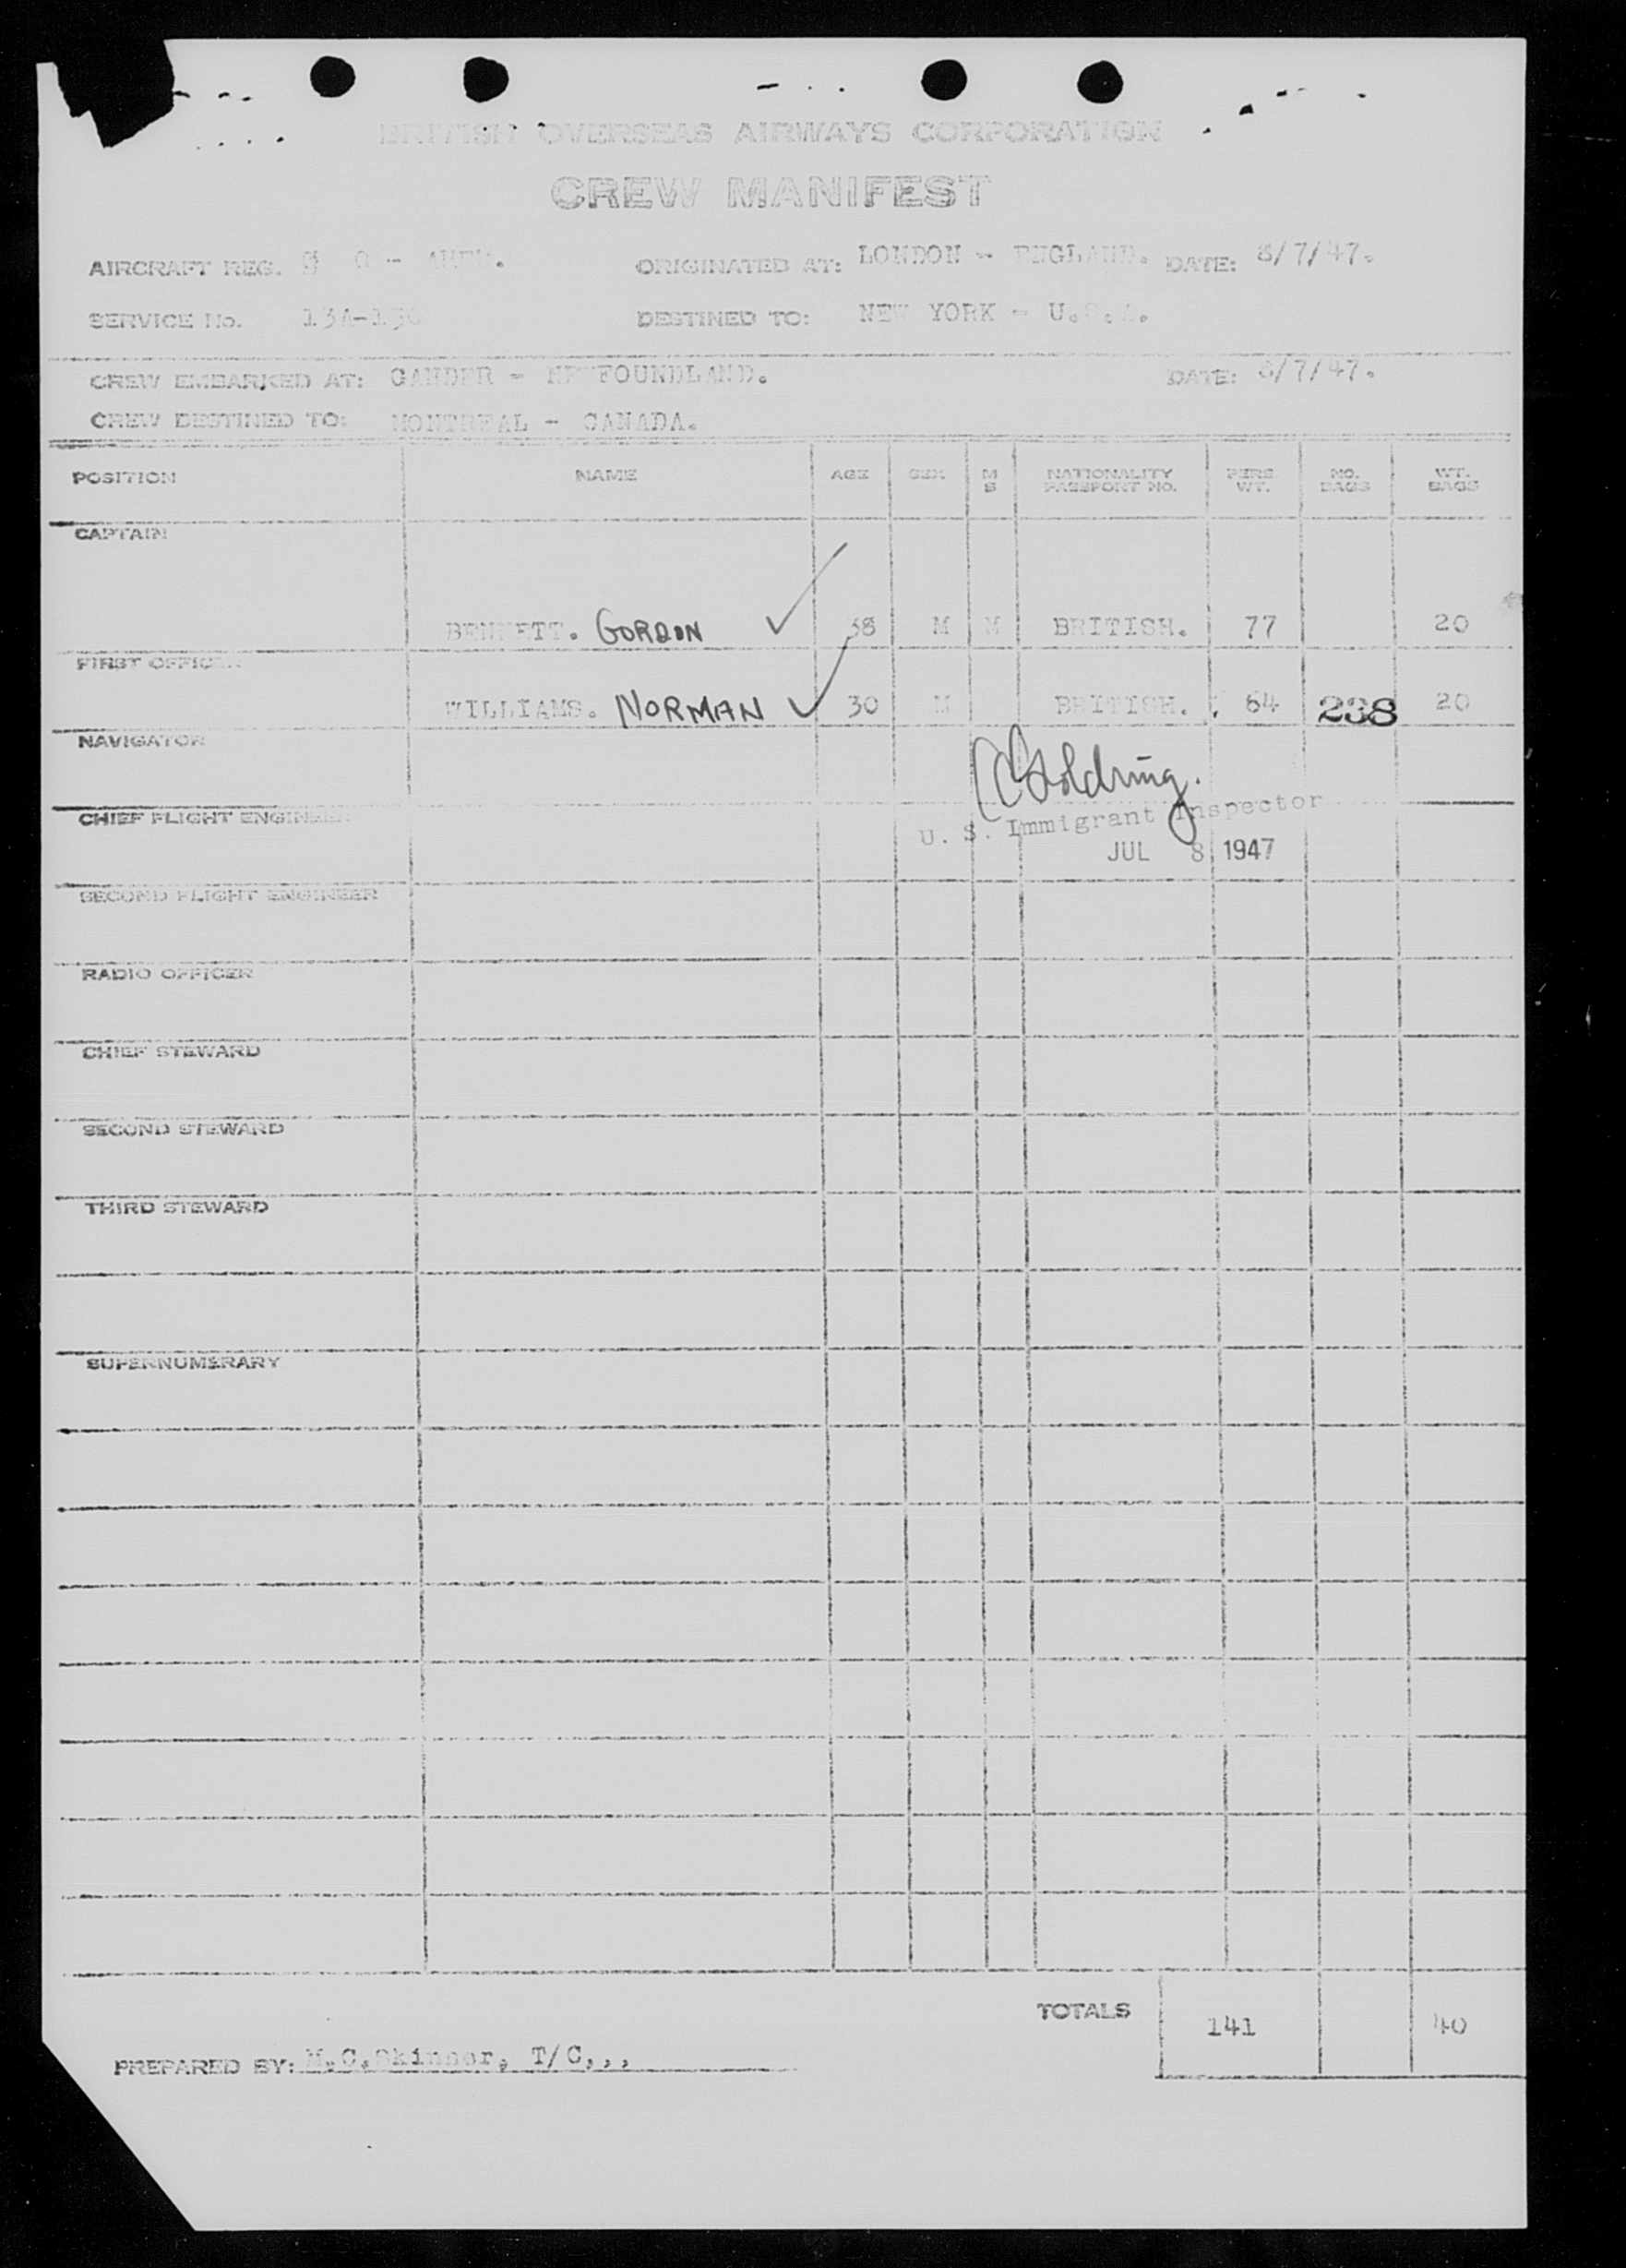 BRITISH OVERSEAS AIRWAYS CORPORATION
CREW MANIFEST
AIRCRAFT REG. G - ORIGINATED AT: LONDON - ENGLAND. DATE: 8/7/47.
SERVICE No. DESTINED TO: NEW YORK - U.S.A.
CREW EMBARKED AT: GANDER - NEWFOUNDLAND. DATE: 8/7/47.
CREW DESTINED TO: MONTREAL - CANADA.
POSITION NAME AGE SEX M S NATIONALITY PASSPORT NO. PERS WT. NO. BAGS WT. BAGS
CAPTAIN
BENNETT. GORDON ✓ 38 M M BRITISH. 77 20
FIRST OFFICER
WILLIAMS. NORMAN ✓ 30 M BRITISH. 64 238 20
NAVIGATOR
Goldring.
CHIEF FLIGHT ENGINEER
U. S. Immigrant Inspector
JUL 8 1947
SECOND FLIGHT ENGINEER
RADIO OFFICER
CHIEF STEWARD
SECOND STEWARD
THIRD STEWARD
SUPERNUMERARY
TOTALS 141 40
PREPARED BY: M.C.Skinner, T/C,,,